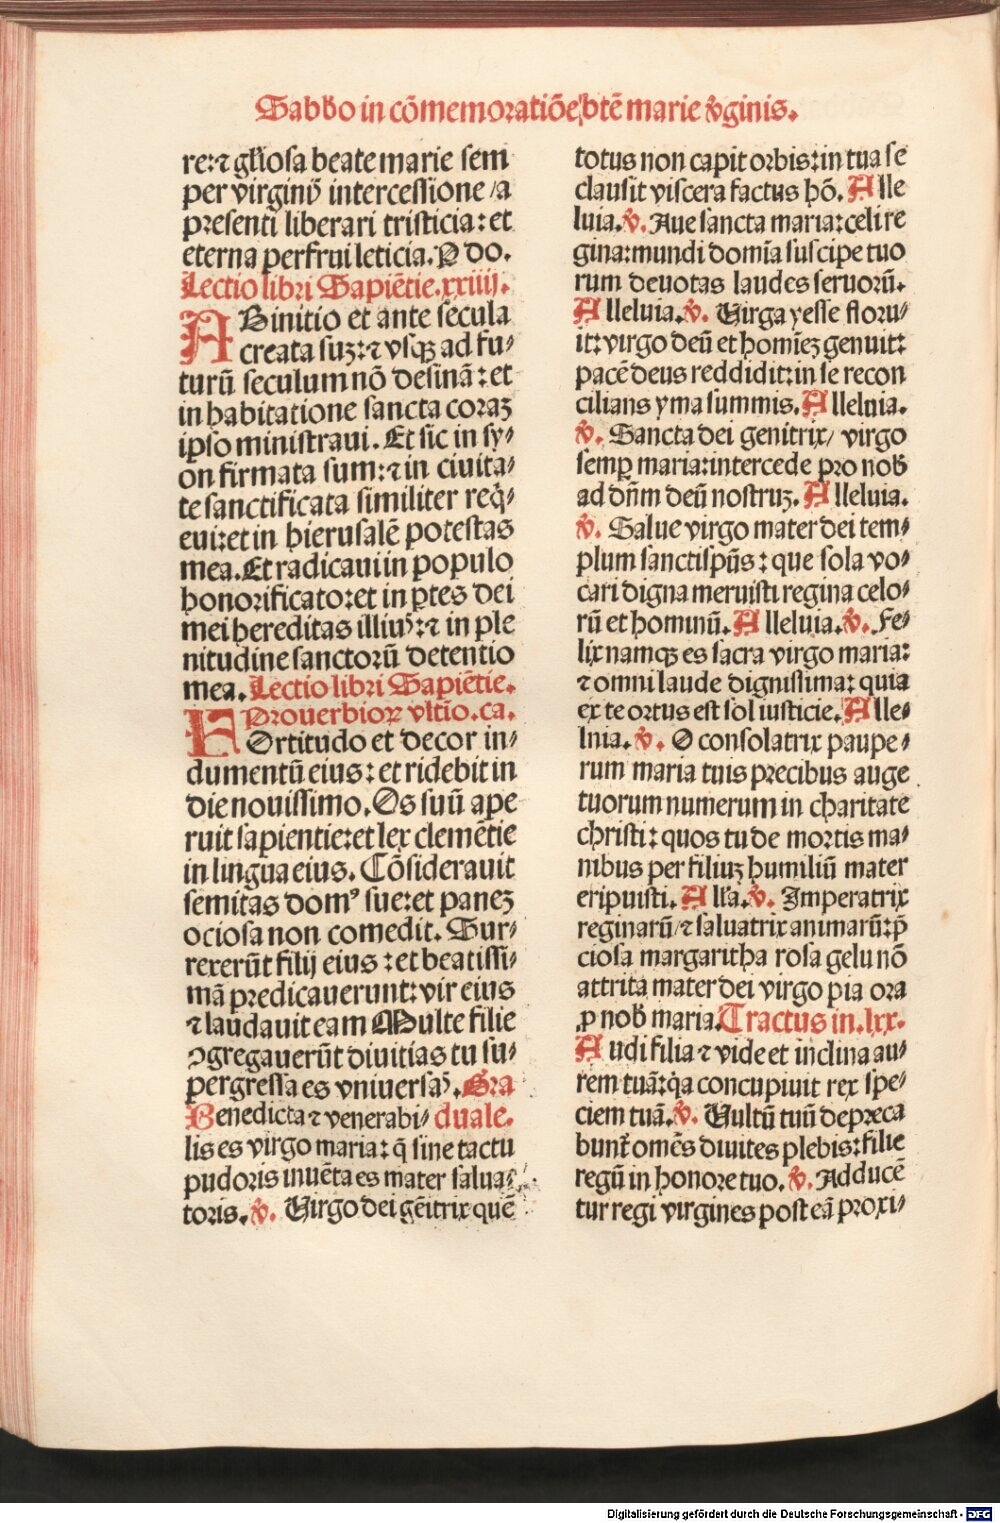 Sabbo in cōmemoratiōe btē marie v̄ginis.
re: ⁊ gl̄iosa beate marie sem
per virginꝰ intercessione / a
presenti liberari tristicia: et
eterna perfrui leticia. P do.
Lectio libri Sapiētie. xxiiij.
AB initio et ante secula
creata suꝫ: ⁊ vsqꝫ ad fu⸗
turū seculum nō desinā: et
in habitatione sancta coraꝫ
ipso ministraui. Et sic in sy⸗
on firmata sum: ⁊ in ciuita⸗
te sanctificata similiter req̄⸗
eui: et in hierusalē potestas
mea. Et radicaui in populo
honorificato: et in ꝑtes dei
mei hereditas illiꝰ: ⁊ in ple
nitudine sanctorū detentio
mea. Lectio libri Sapiētie.
Prouerbioꝝ vltio. ca.
FOrtitudo et decor in⸗
dumentū eius: et ridebit in
die nouissimo. Os suū ape
ruit sapientie: et lex clemētie
in lingua eius. Cōsiderauit
semitas domꝰ sue: et paneꝫ
ociosa non comedit. Sur⸗
rexerūt filij eius: et beatissi⸗
mā predicauerunt: vir eius
⁊ laudauit eam Multe filie
ꝯgregauerūt diuitias tu su⸗
pergressa es vniuersaꝰ. Gra
Benedicta ⁊ venerabi⸗ duale.
lis es virgo maria: q̄ sine tactu
pudoris inuēta es mater salua⸗
toris. v̄. Virgo dei gēitrix quē
totus non capit orbis: in tua se
clausit viscera factus hō. Alle
luia. v̄. Aue sancta maria: celi re
gina: mundi domīa suscipe tuo
rum deuotas laudes seruorū.
Alleluia. v̄. Virga yesse floru⸗
it: virgo deū et homīeꝫ genuit:
pacē deus reddidit: in se recon
cilians yma summis. Alleluia.
v̄. Sancta dei genitrix / virgo
semꝑ maria: intercede pro nob̄
ad dn̄m deū nostruꝫ. Alleluia.
v̄. Salue virgo mater dei tem⸗
plum sancti spūs: que sola vo⸗
cari digna meruisti regina celo⸗
rū et hominū. Alleluia. v̄. Fe⸗
lix namqꝫ es sacra virgo maria:
⁊ omni laude dignissima: quia
ex te ortus est sol iusticie. Alle⸗
luia. v̄. O consolatrix paupe⸗
rum maria tuis precibus auge
tuorum numerum in charitate
christi: quos tu de mortis ma⸗
nibus per filiuꝫ humiliū mater
eripuisti. All'a. v̄. Imperatrix
reginarū / ⁊ saluatrix animarū: p̄
ciosa margaritha rosa gelu nō
attrita mater dei virgo pia ora
ꝓ nob̄ maria. Tractus in. lxx.
Audi filia ⁊ vide et inclina au⸗
rem tuā: qa concupiuit rex spe⸗
ciem tuā. v̄. Vultū tuū depreca
bunt̄ omēs diuites plebis: filie
regū in honore tuo. v̄. Adducē
tur regi virgines post eā proxi⸗
Digitalisierung gefördert durch die Deutsche Forschungsgemeinschaft - DFG